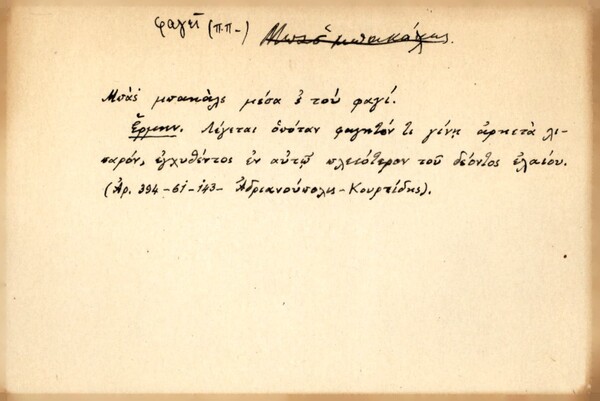 φαγεῖ (π.π-) Μπάς μπακάλης.
Μπάς μπακάλε μέσα ς τοὺ φαγί.
Ἑρμην. Λέγεται ὁπόταν φαγητόν τι γίνῃ ἀρκετὰ λι-
παρόν, ἐγχυθέντος ἐν αὐτῷ πλειότερον τοῦ δέοντος ἐλαίου.
(Ἀρ. 394-61-143- Ἀδριανούπολις-Κουρτίδης).